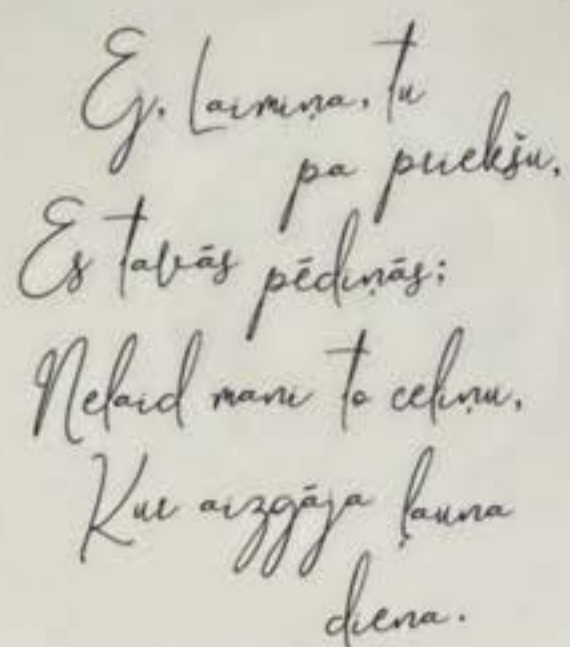 Ej, Laimiņa, tu
pa priekšu,
Es tavās pēdiņās;
Nelaid mani to celiņu,
Kur aizgāja ļauna
diena.